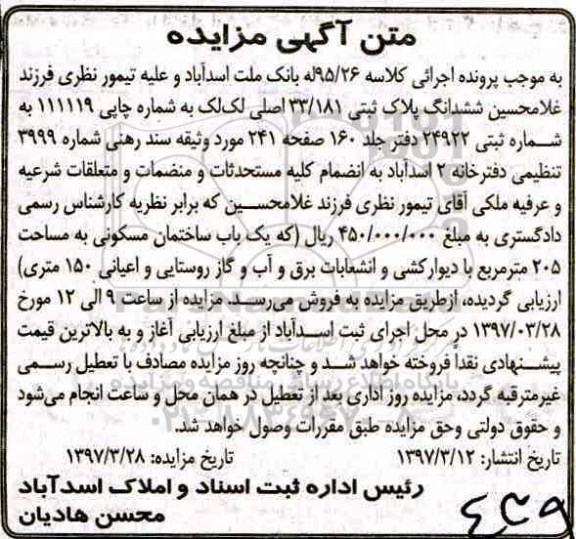 متن آگهی مزایده
به موجب پرونده اجرائی کلاسه ۹۵/۲۶له بانک ملت اسدآباد و علیه تیمور نظری فرزند
غلامحسین ششدانگ پلاک ثبتی ۳۳/۱۸۱ اصلی لک‌لک به شماره چاپی ۱۱۱۱۱۹ به
شماره ثبتی ۲۴۹۲۲ دفتر جلد ۱۶۰ صفحه ۲۴۱ مورد وثیقه سند رهنی شماره ۳۹۹۹
تنظیمی دفترخانه ۲ اسدآباد به انضمام کلیه مستحدثات و منضمات و متعلقات شرعیه
و عرفیه ملکی آقای تیمور نظری فرزند غلامحسین که برابر نظریه کارشناس رسمی
دادگستری به مبلغ ۴۵۰/۰۰۰/۰۰۰ ریال (که یک باب ساختمان مسکونی به مساحت
۲۰۵ مترمربع با دیوارکشی و انشعابات برق و آب و گاز روستایی و اعیانی ۱۵۰ متری)
ارزیابی گردیده، ازطریق مزایده به فروش می‌رسد. مزایده از ساعت ۹ الی ۱۲ مورخ
۱۳۹۷/۰۳/۲۸ در محل اجرای ثبت اسدآباد از مبلغ ارزیابی آغاز و به بالاترین قیمت
پیشنهادی نقداً فروخته خواهد شد و چنانچه روز مزایده مصادف با تعطیل رسمی
غیرمترقبه گردد، مزایده روز اداری بعد از تعطیل در همان محل و ساعت انجام می‌شود
و حقوق دولتی وحق مزایده طبق مقررات وصول خواهد شد.
تاریخ انتشار: ۱۳۹۷/۳/۱۲ تاریخ مزایده: ۱۳۹۷/۳/۲۸
رئیس اداره ثبت اسناد و املاک اسدآباد
محسن هادیان
۴۳۹